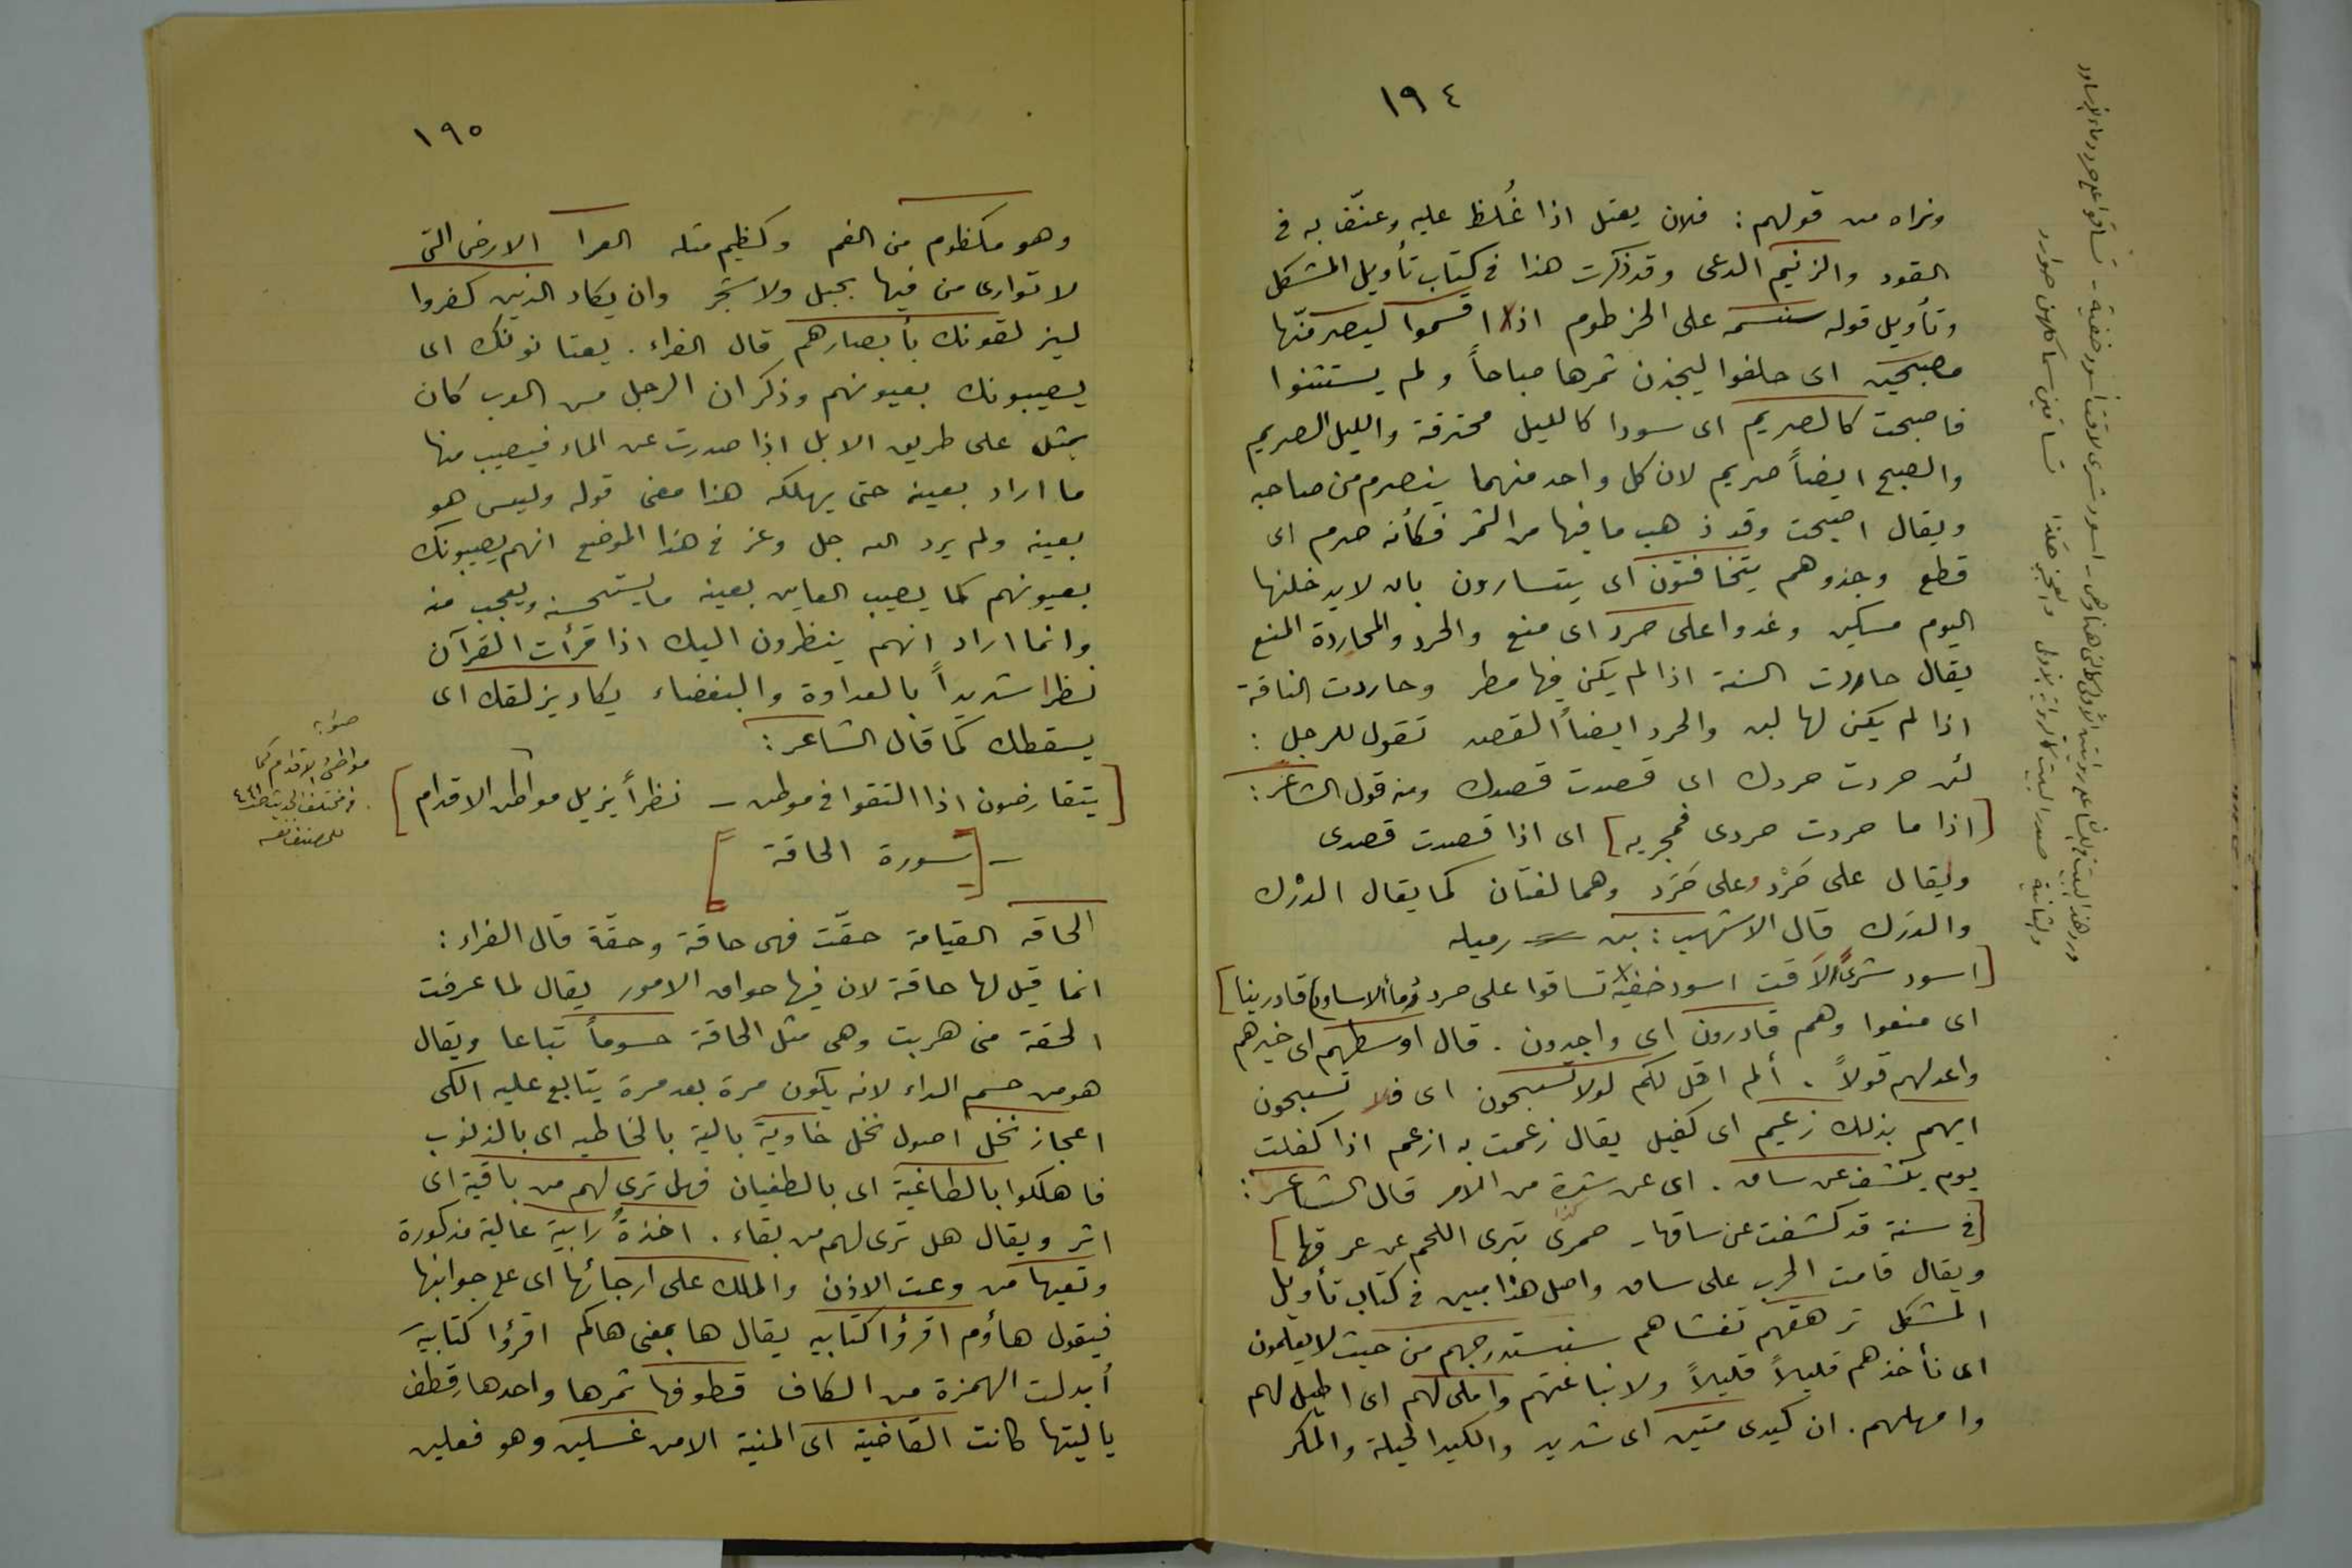 ١٩٤
ونراه من قولهم : فلان يعتل اذا غُلظ عليه وعنّف به فى
القود والزنيم الدعى وقد ذكرت هذا فى كتاب تأويل المشكل
وتأويل قوله سنسمه على الخرطوم اذ اقسموا ليصرمنّها
مصبحين اى حلفوا ليجذن ثمرها صباحاً ولم يستثنوا
فاصبحت كالصريم اى سودا كالليل محترقة والليل الصريم
والصبح ايضاً صريم لان كل واحد منهما ينصرم من صاحبه
ويقال اصبحت وقد ذهب ما فيها من الثمر فكأنه صرم اى
قطع وجذ وهم يتخافتون اى يتسارون بان لا يدخلنها
اليوم مسكين وغدوا على حرد اى منع والحرد والمحاردة المنع
يقال حاردت السنة اذا لم يكن فيها مطر وحاردت الناقة
اذا لم يكن لها لبن والحرد ايضاً القصد تقول للرجل :
لئن حردت حردك اى قصدت قصدك ومنه قول الشاعر :
[اذا ما حردت حردى فمجريه] اى اذا قصدت قصدى
ويقال على حَرْد وعلى حَرَد وهما لغتان كما يقال الدرْك
والدرَك قال الاشهب : بن رميله
[اسود شرًى لاقت اسود خفية تساقوا على حرد دماء الاساود) قادرينا]
اى منعوا وهم قادرون اى واجدون . قال اوسطهم اى خيرهم
واعدلهم قولاً . ألم اقل لكم لولا تسبحون اى فلا تسبحون
ايهم بذلك زعيم اى كفيل يقال زعمت به ازعم اذا كفلت
يوم يكشف عن ساق . اى عن شدة من الامر قال الشاعر :
[فى سنة قد كشفت عن ساقها - حمرىّ تبرى اللحم عن عرقها]
ويقال قامت الحرب على ساق واصل هذا مبين فى كتاب تأويل
المشكل ترهقهم تغشاهم سنستدرجهم من حيث لا يعلمون
اى نأخذهم قليلاً قليلاً ولا نباغتهم واملى لهم اى اطيل لهم
وامهلهم . ان كيدى متين اى شديد والكيد الحيلة والمكر
١٩٥
وهو مكظوم من الغم وكظيم مثله العرا الارض التى
لا توارى من فيها بجبل ولا شجر وان يكاد الذين كفروا
ليزلقونك بأبصارهم قال الفراء . يعتانونك اى
يصيبونك بعيونهم وذكر ان الرجل من العرب كان
يمثل على طريق الابل اذا صدرت عن الماء فيصيب منها
ما اراد بعينه حتى يهلكه هذا معنى قوله وليس هو
بعينه ولم يرد الله جل وعز فى هذا الموضع انهم يصيبونك
بعيونهم كما يصيب العاين بعينه ما يستحسنه ويعجب منه
وانما اراد انهم ينظرون اليك اذا قرأت القرآن
نظرا شديداً بالعداوة والبغضاء يكاد يزلقك اى
يسقطك كما قال الشاعر :
[يتقارضون اذا التقوا فى موطن - نظراً يزيل مواطن الاقدام]
صوابه
مواطئ الاقدام كما
فى مختلف الحديث
للمصنف نفسه
- [سورة الحاقة]
الحاقه القيامة حقّت فهى حاقة وحقّة قال الفراء :
انما قيل لها حاقة لان فيها حواق الامور يقال لما عرفت
الحقة منى هربت وهى مثل الحاقة حسوماً تباعا ويقال
هو من حسم الداء لانه يكون مرة بعد مرة يتابع عليه الكى
اعجاز نخل اصول نخل خاوية بالية بالخاطيه اى بالذنوب
فاهلكوا بالطاغية اى بالطغيان فهل ترى لهم من باقية اى
اثر ويقال هل ترى لهم من بقاء . اخذةً رابية عالية مذكورة
وتعيها من وعت الاذن والملك على ارجائها اى على جوانبها
فيقول هاؤم اقرؤا كتابيه يقال ها بمعنى هاكم اقرؤا كتابيه
أبدلت الهمزة من الكاف قطوفها ثمرها واحدها قطف
ياليتها كانت القاضية اى المنية الا من غسلين وهو فعلين